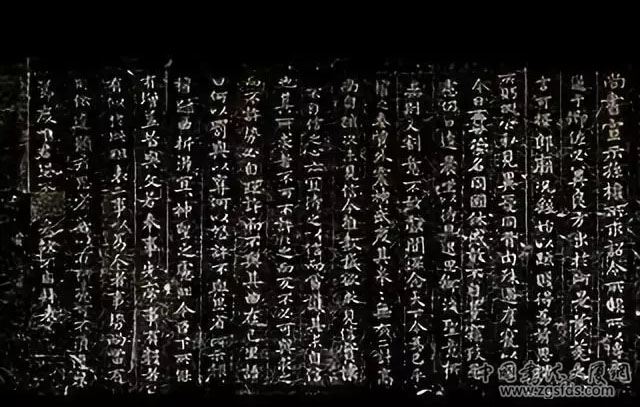 尚書宣示孫權所求詔令所報所以博示
逮于卿佐必冀良方出於阿是芻蕘之
言可擇廊廟況繇始以疏賤得為前恩橫
所盻睨公私見異愛同骨肉殊遇厚寵以至
今日再世榮名同國休慼敢不自量竊致愚
慮仍日達晨坐以待旦退思鄙淺聖意所棄
則又割意不敢獻聞深念天下今為已平
權之委質外震神武度其拳拳無有二計高
尚自疏況未見信今推款誠欲求見信實懷
不自信之心亦宜待之以信而當護其未自信
也其所求者不可不許許之而反不必可與求之
而不許勢必自絕許而不與其曲在己里語
曰何以罰與以奪何以怒許不與思省所示報
權疏曲折得宜宜神聖之慮非今臣下所能
有增益昔與文若奉事先帝事有數者
有似於此粗表二事以為今者事勢尚當有
所依違願君思省若以在所慮可不須復
節度唯君恐不可采故不自拜表
中国书法大展网
www.zgsfds.com